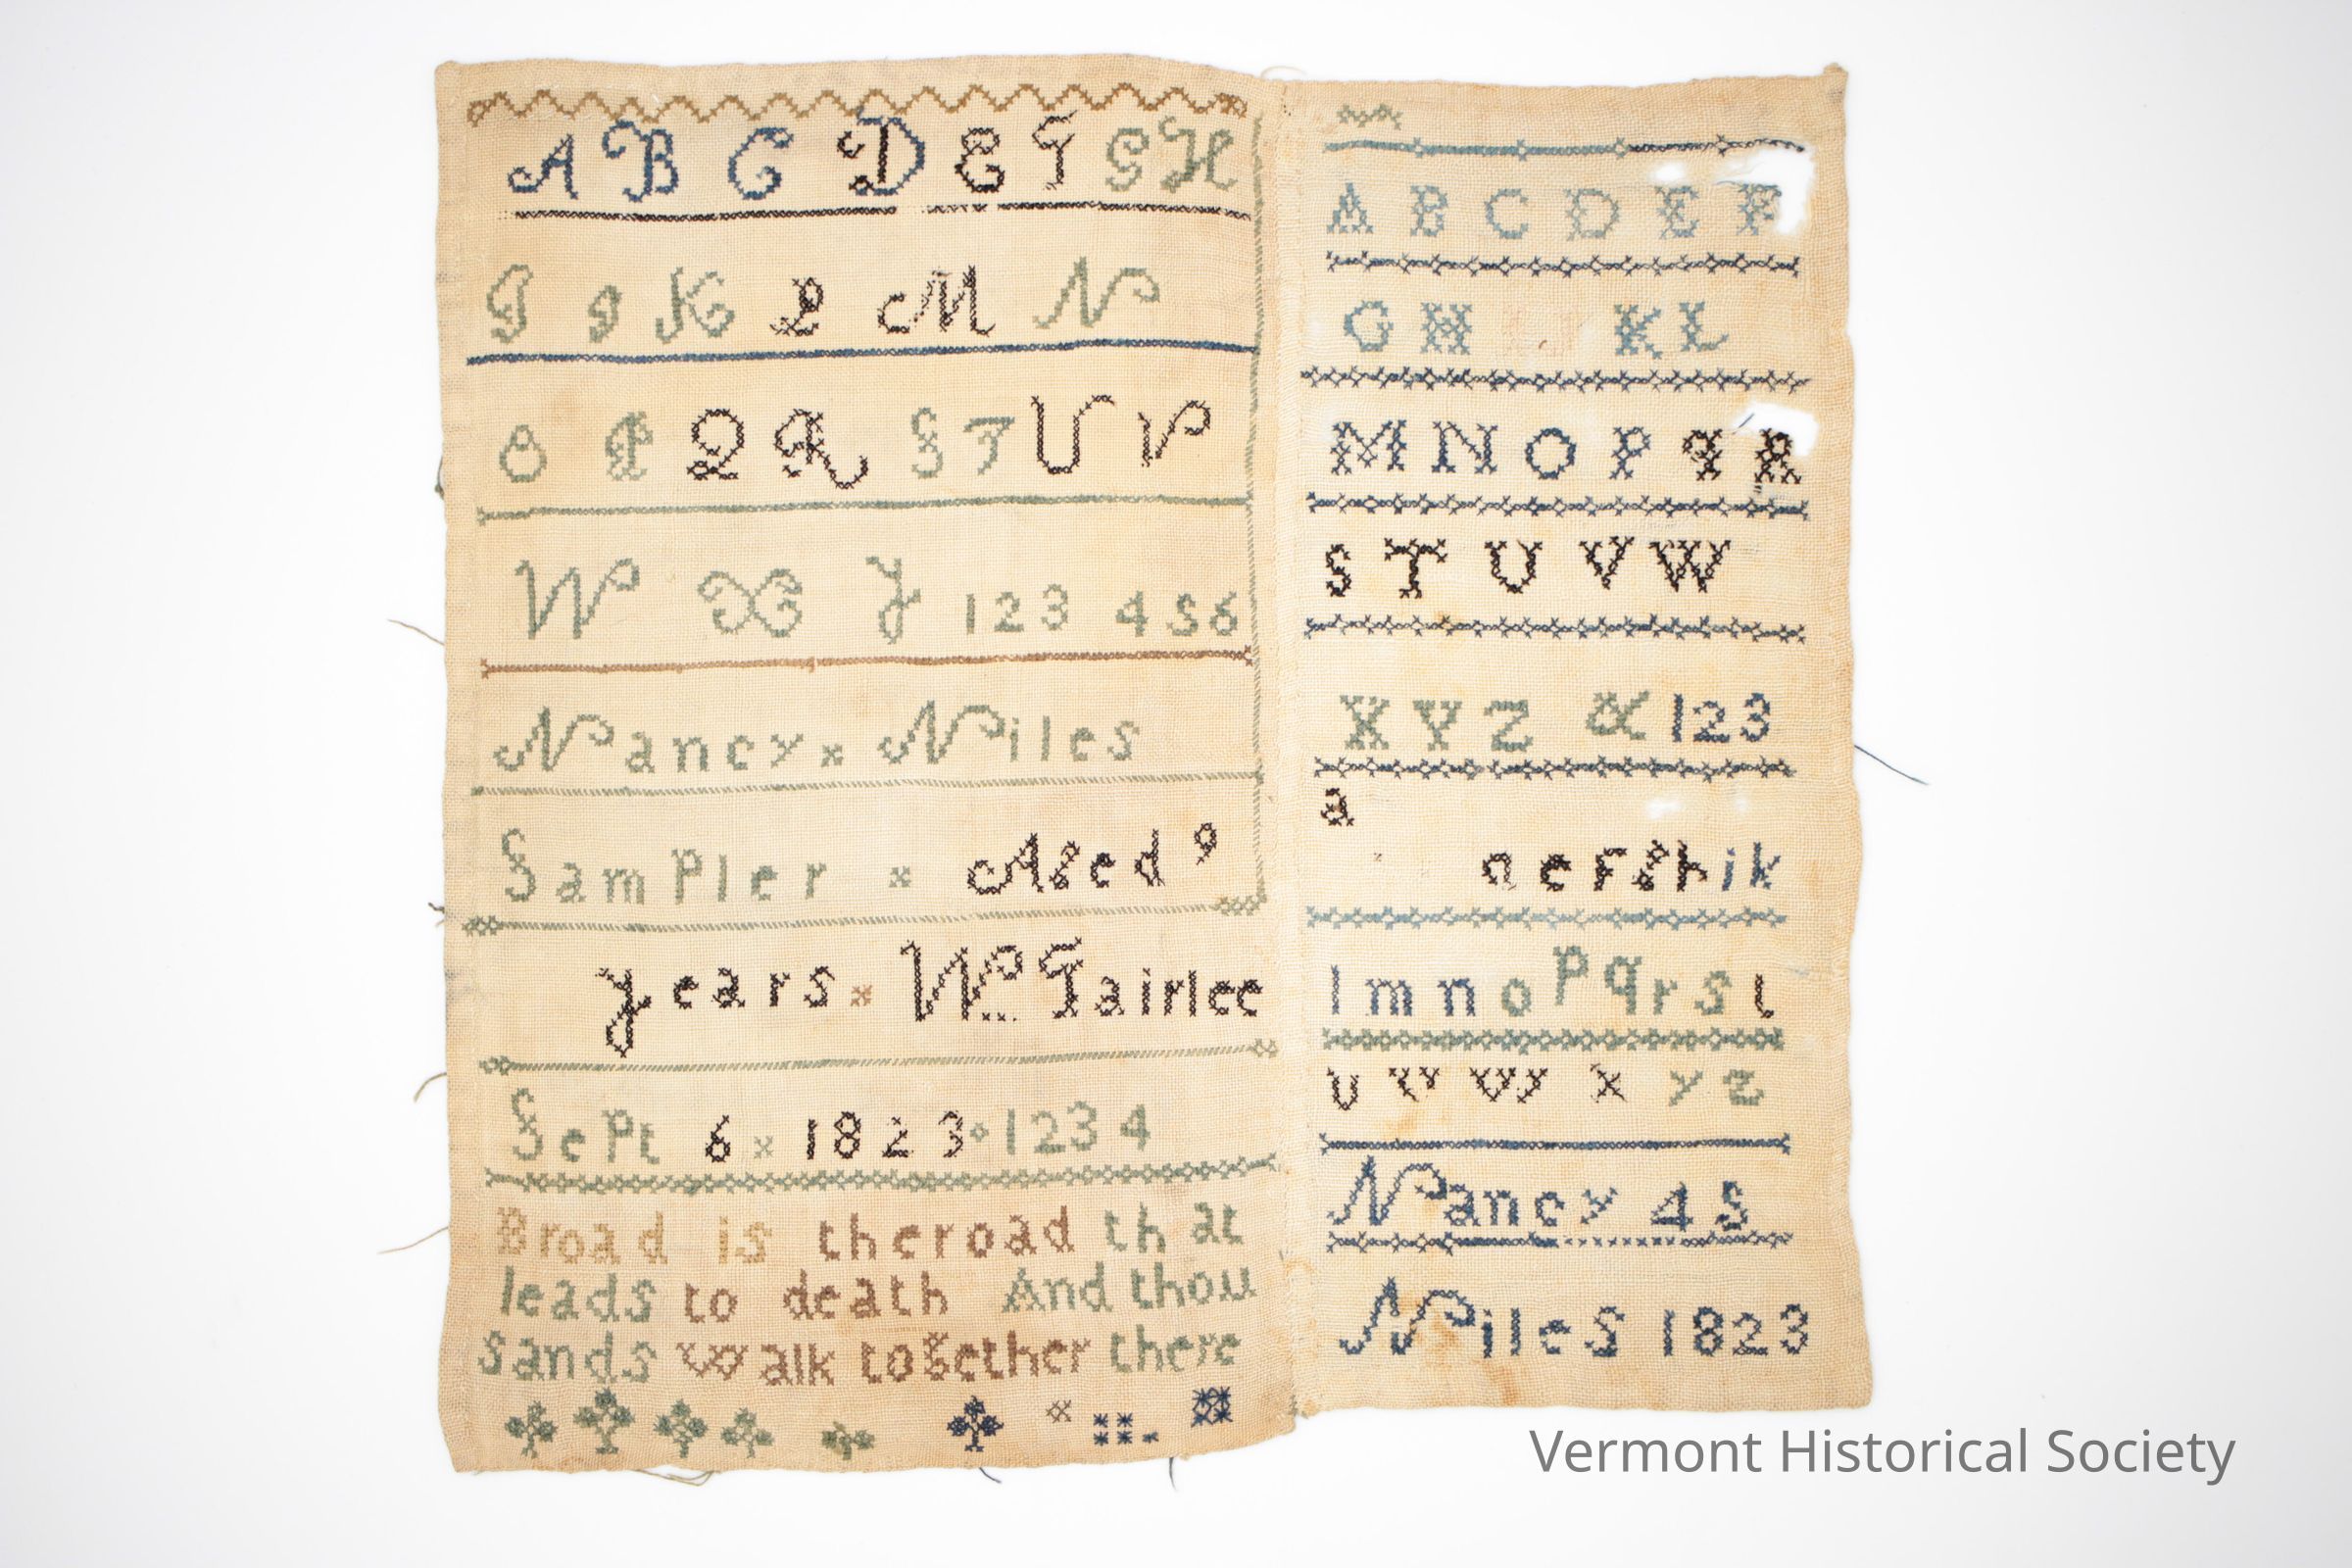 A B C D E F G H
I J K L M N
O P Q R S T U V
W X Y 1 2 3 4 5 6
Nancy x Niles
Sampler x Aged 9
years x W... Fairlee
Sept 6 x 1823 1234
Broad is the road th at
leads to death And thou
sands walk together there
A B C D E F
G H K L
M N O P q R
S T U V W
X Y Z & 1 2 3
a
e f g h i k
l m n o p q r s t
u v w x y z
Nancy 4 5
Niles 1823
Vermont Historical Society